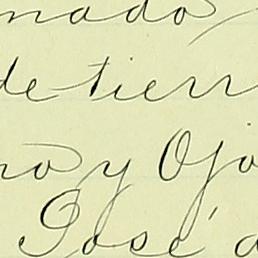 nado
de tierr
no y Ojo
José a